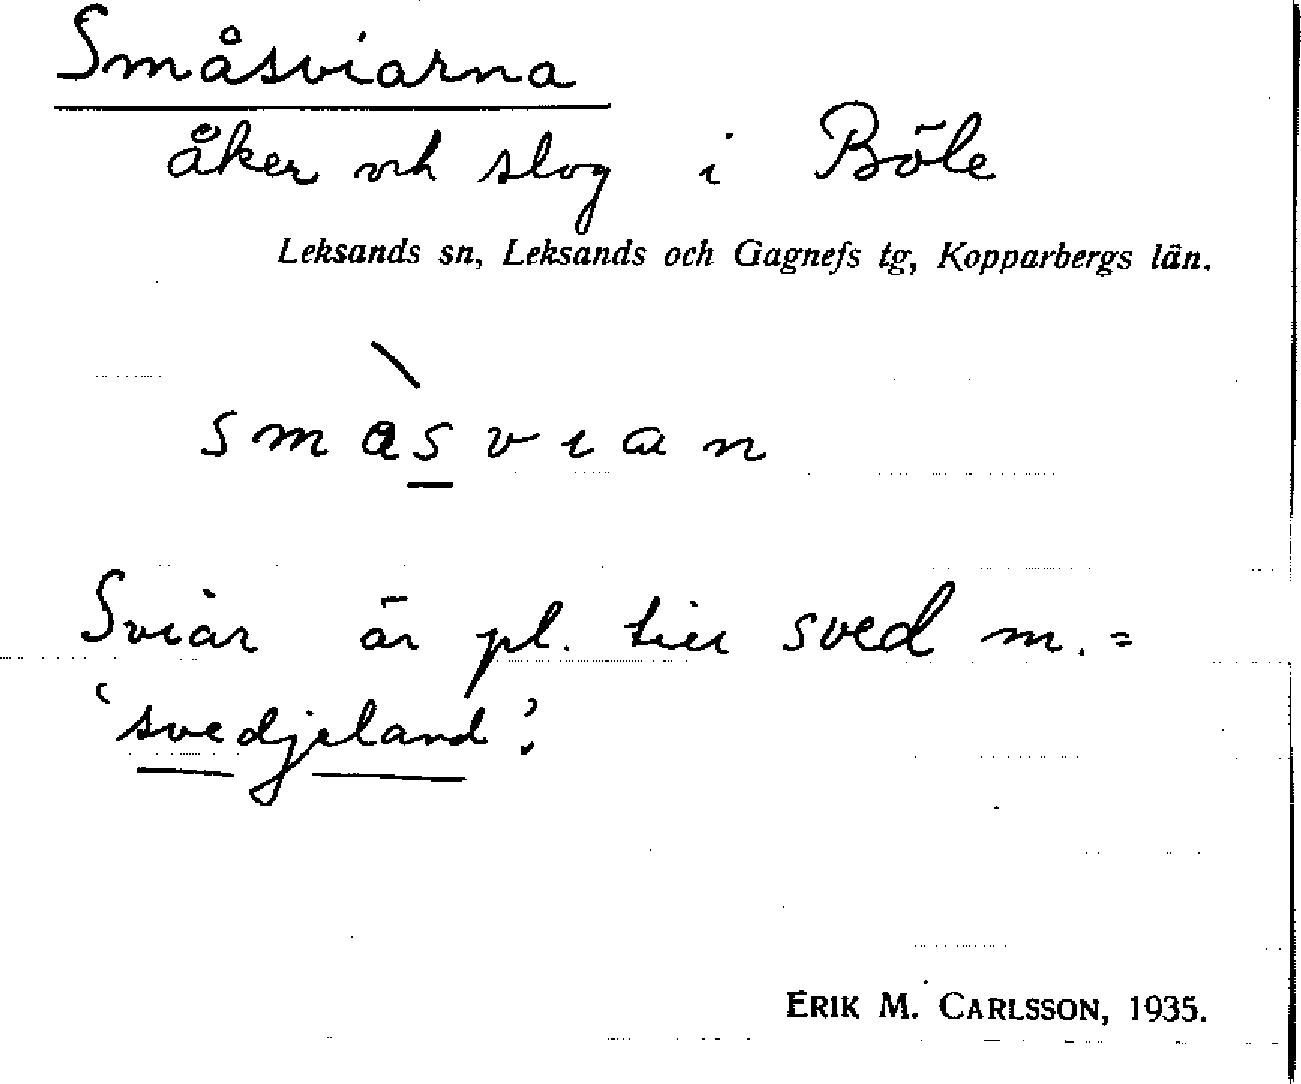 Småsviarna
åker och slog i Böle
Leksands sn, Leksands och Gagnefs tg, Kopparbergs län.
smasvian
Sviar är pl. till sved m. =
'svedjeland'.
ERIK M. CARLSSON, 1935.